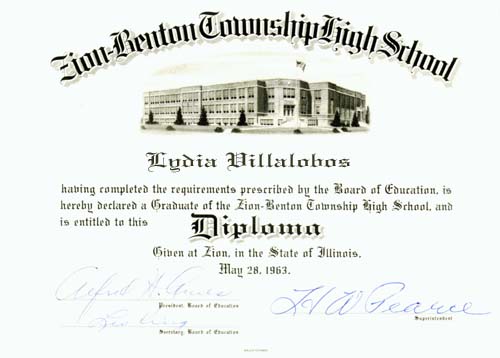 Zion-Benton Township High School
Lydia Villalobos
having completed the requirements prescribed by the Board of Education, is
hereby declared a Graduate of the Zion-Benton Township High School, and
is entitled to this Diploma
Given at Zion, in the State of Illinois,
May 28, 1963.
Alfred H.
President, Board of Education
H W Pearce
Superintendent
Secretary, Board of Education